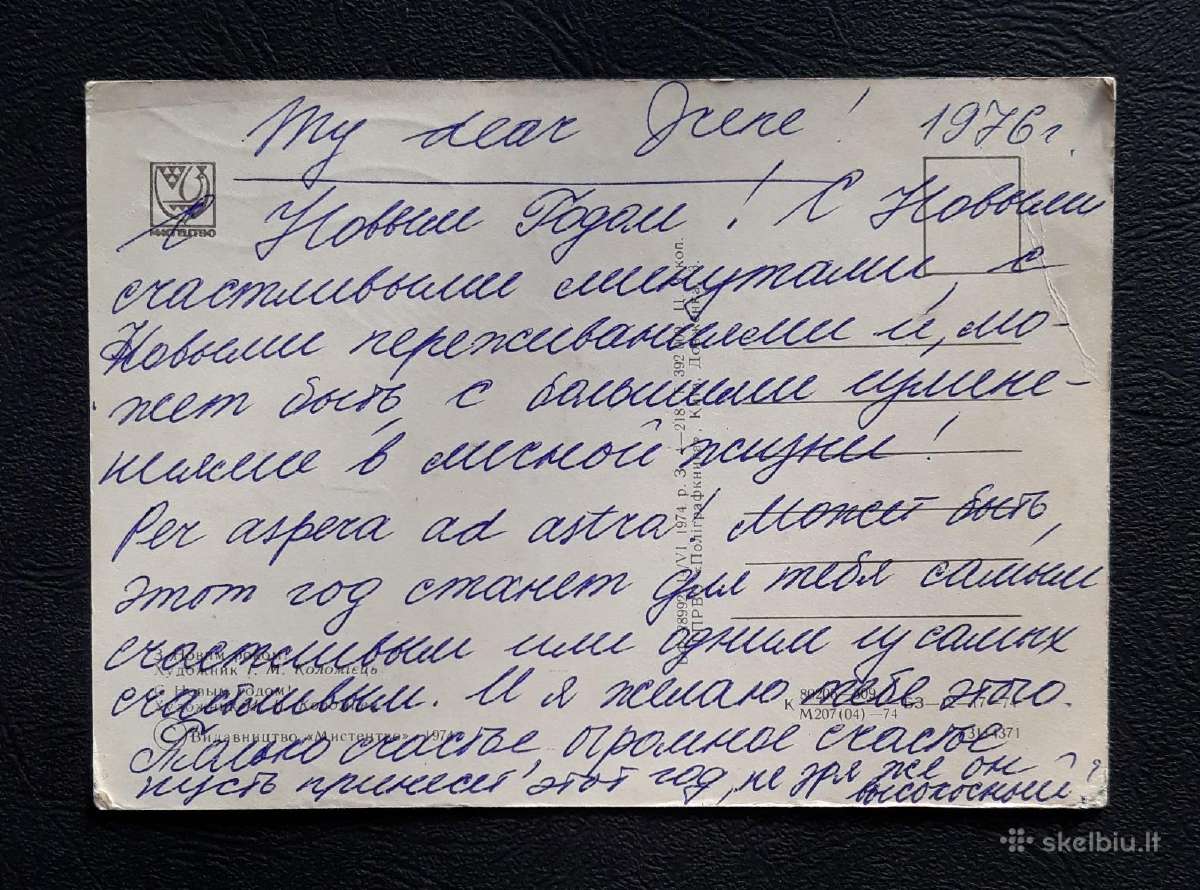 My dear Irene! 1976 г.
МИСТЕЦТВО
С Новым Годом! С Новыми
счастливыми минутами, с
Новыми переживаниями и, мо-
жет быть, с большими измене-
ниями в личной жизни!
Per aspera ad astra! Может быть,
этот год станет для тебя самым
счастливым или одним из самых
счастливым. И я желаю тебе этого.
Только счастье, огромное счастье
пусть принесет этот год, не зря же он
высокосный?
З Новим роком!
Художник І. М. Коломієць
С Новым Годом!
Художник
© Видавництво «Мистецтво», 1974
К 80206 609
М207(04)—74
skelbiu.lt